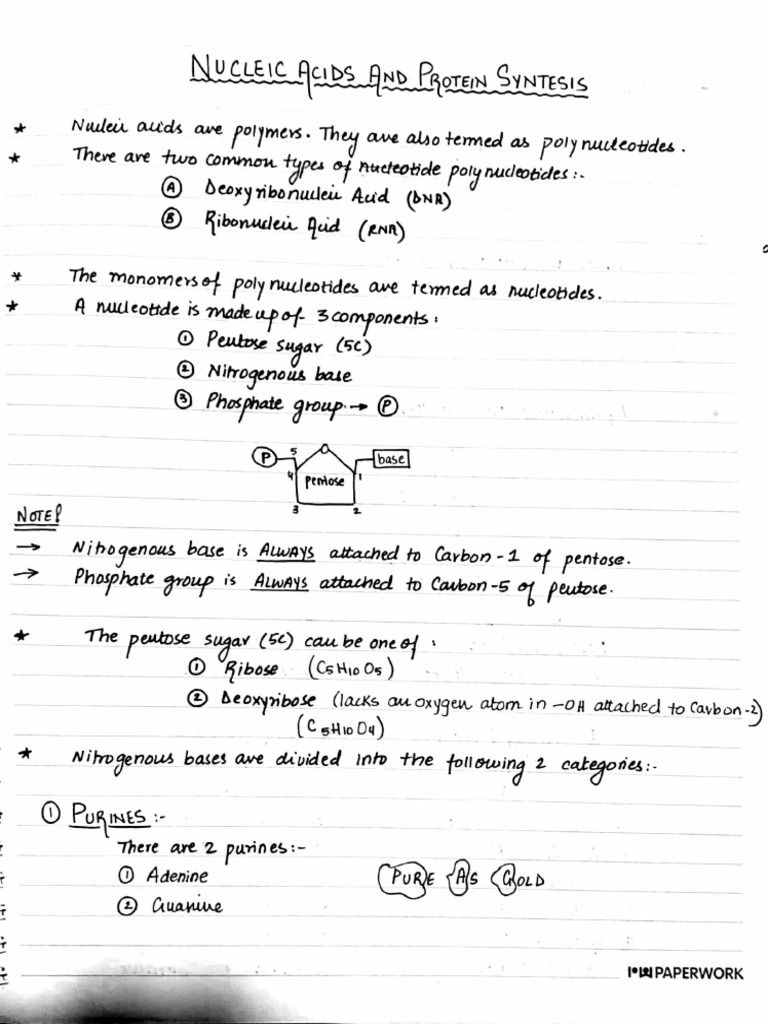 NUCLEIC ACIDS AND PROTEIN SYNTESIS
* Nucleic acids are polymers. They are also termed as polynucleotides.
* There are two common types of nucleotide polynucleotides:-
Ⓐ Deoxyribonucleic Acid (DNA)
Ⓑ Ribonucleic Acid (RNA)
* The monomers of polynucleotides are termed as nucleotides.
* A nucleotide is made up of 3 components:
① Pentose sugar (5C)
② Nitrogenous base
③ Phosphate group → Ⓟ
Ⓟ 5 O base
4 pentose 1
3 2
NOTE!
→ Nitrogenous base is ALWAYS attached to Carbon-1 of pentose.
→ Phosphate group is ALWAYS attached to Carbon-5 of pentose.
* The pentose sugar (5C) can be one of :
① Ribose (C5H10O5)
② Deoxyribose (lacks an oxygen atom in -OH attached to Carbon-2)
(C5H10O4)
* Nitrogenous bases are divided into the following 2 categories:-
① PURINES :-
There are 2 purines:-
① Adenine PURE AS GOLD
② Guanine
PAPERWORK